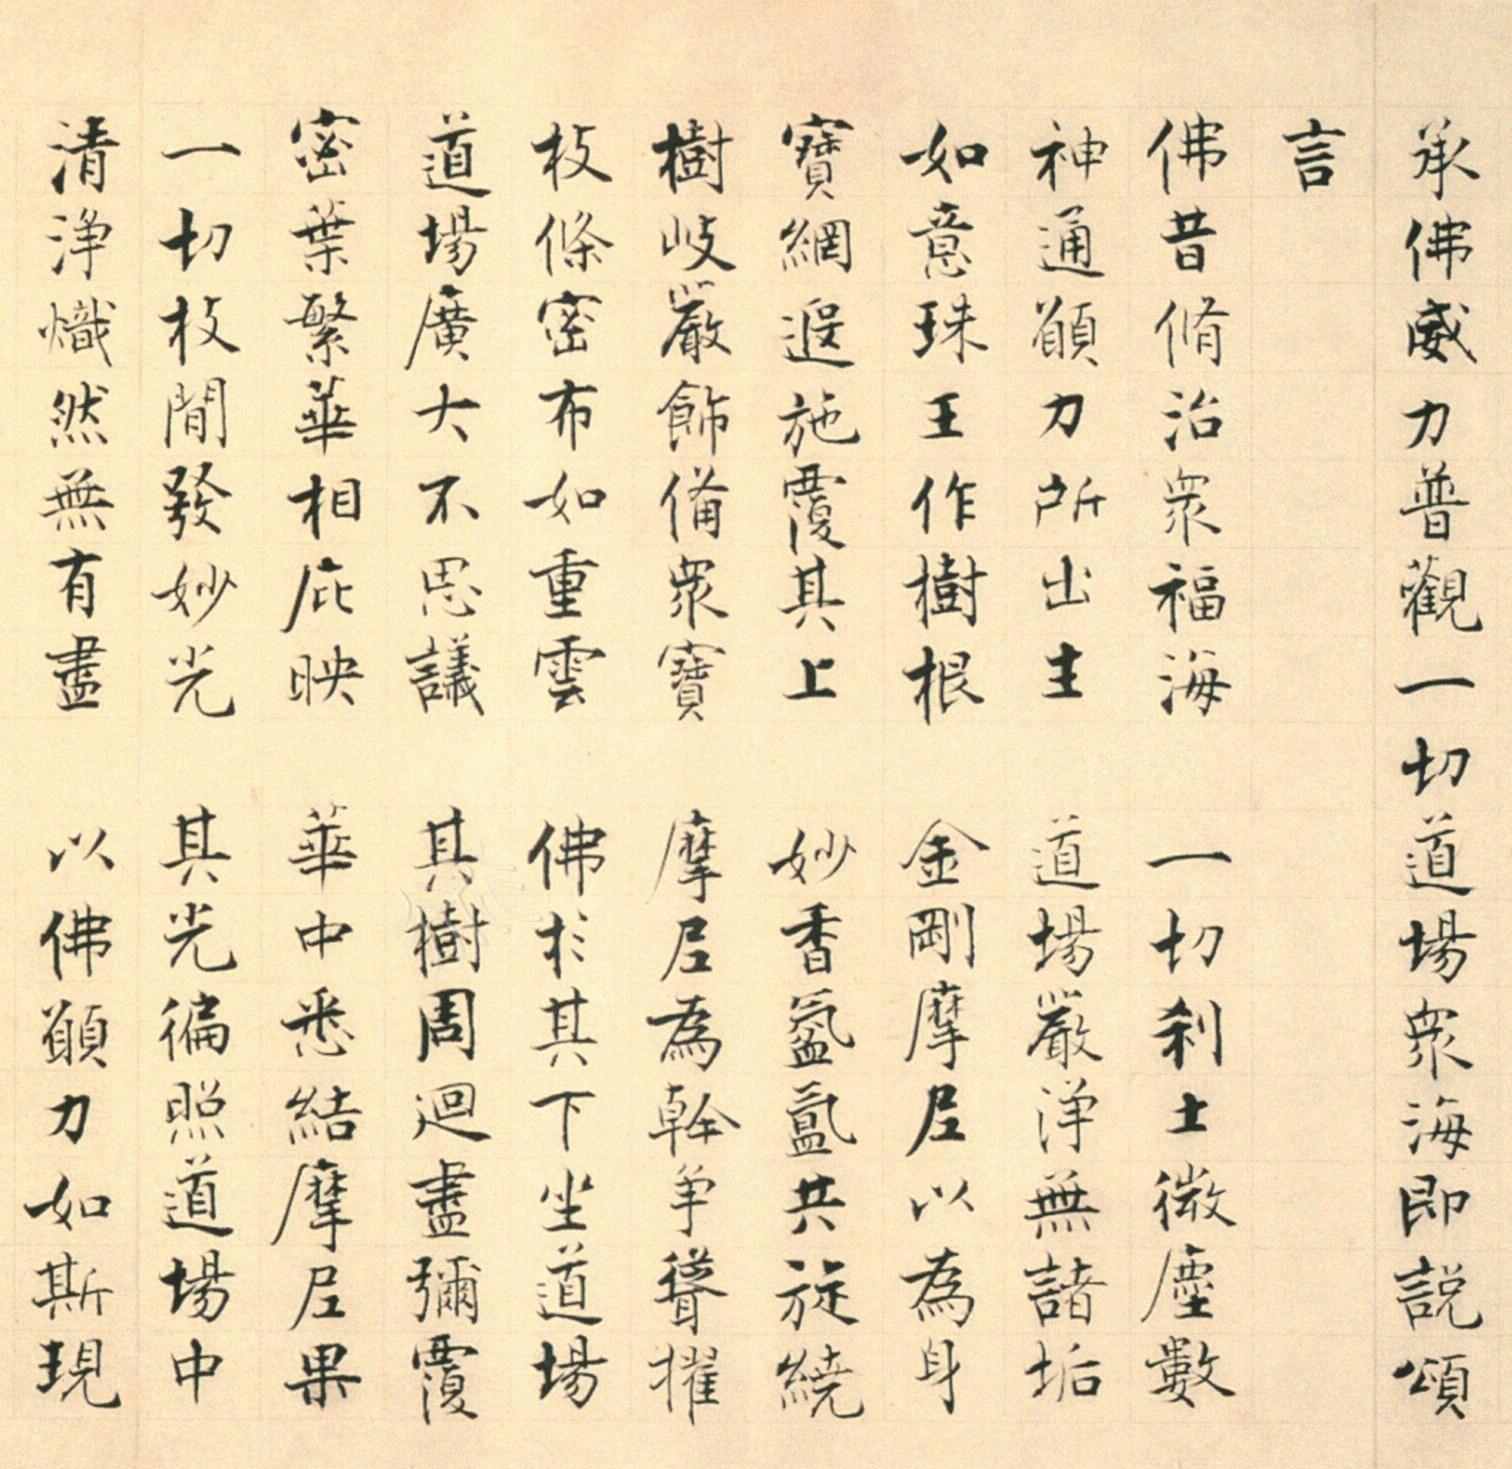 承佛威力普觀一切道場眾海即說頌
言
佛昔脩治眾福海 一切剎土微塵數
神通願力所出生 道場嚴淨無諸垢
如意珠王作樹根 金剛摩尼以為身
寶網遐施覆其上 妙香氤氳共旋繞
樹岐嚴飾備眾寶 摩尼為幹爭聳擢
枝條密布如重雲 佛於其下坐道場
道場廣大不思議 其樹周迴盡彌覆
密葉繁華相庇映 華中悉結摩尼果
一切枝間發妙光 其光徧照道場中
清淨熾然無有盡 以佛願力如斯現